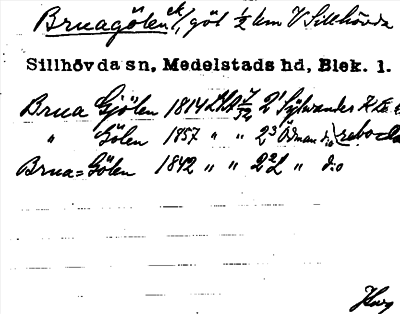 Bruagölen ek/, göl ½ km V Sillhövda
Sillhövda sn, Medelstads hd, Blek. l.
Brua Gjölen 1814 LMA 7/52 2¹ Sylwander
" Gölen 1857 " " 2³ Ödman d:o
Brua=Gölen 1842 " " 2²L " d:o